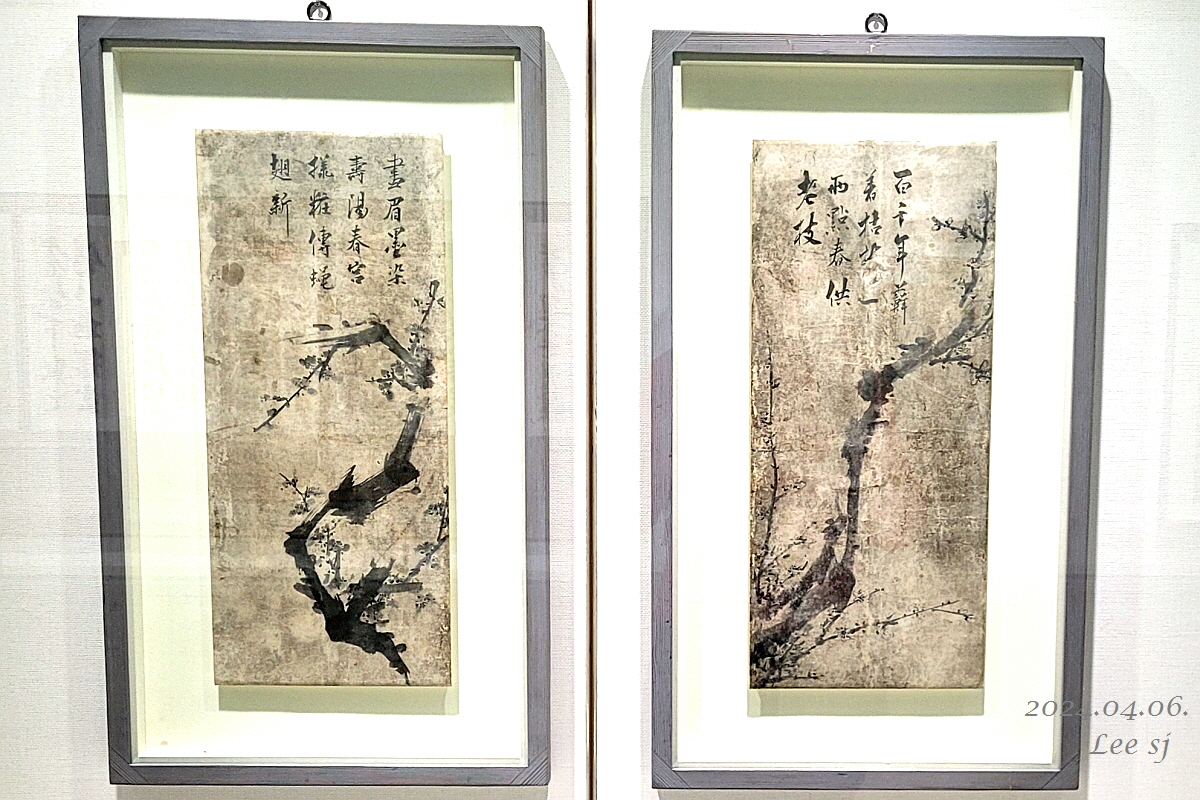 畫眉墨染
壽陽春宮
樣粧傳蜆
翅新
百千年蘚
着枯
一
兩點春供
老枝
04.06.
Lee sj